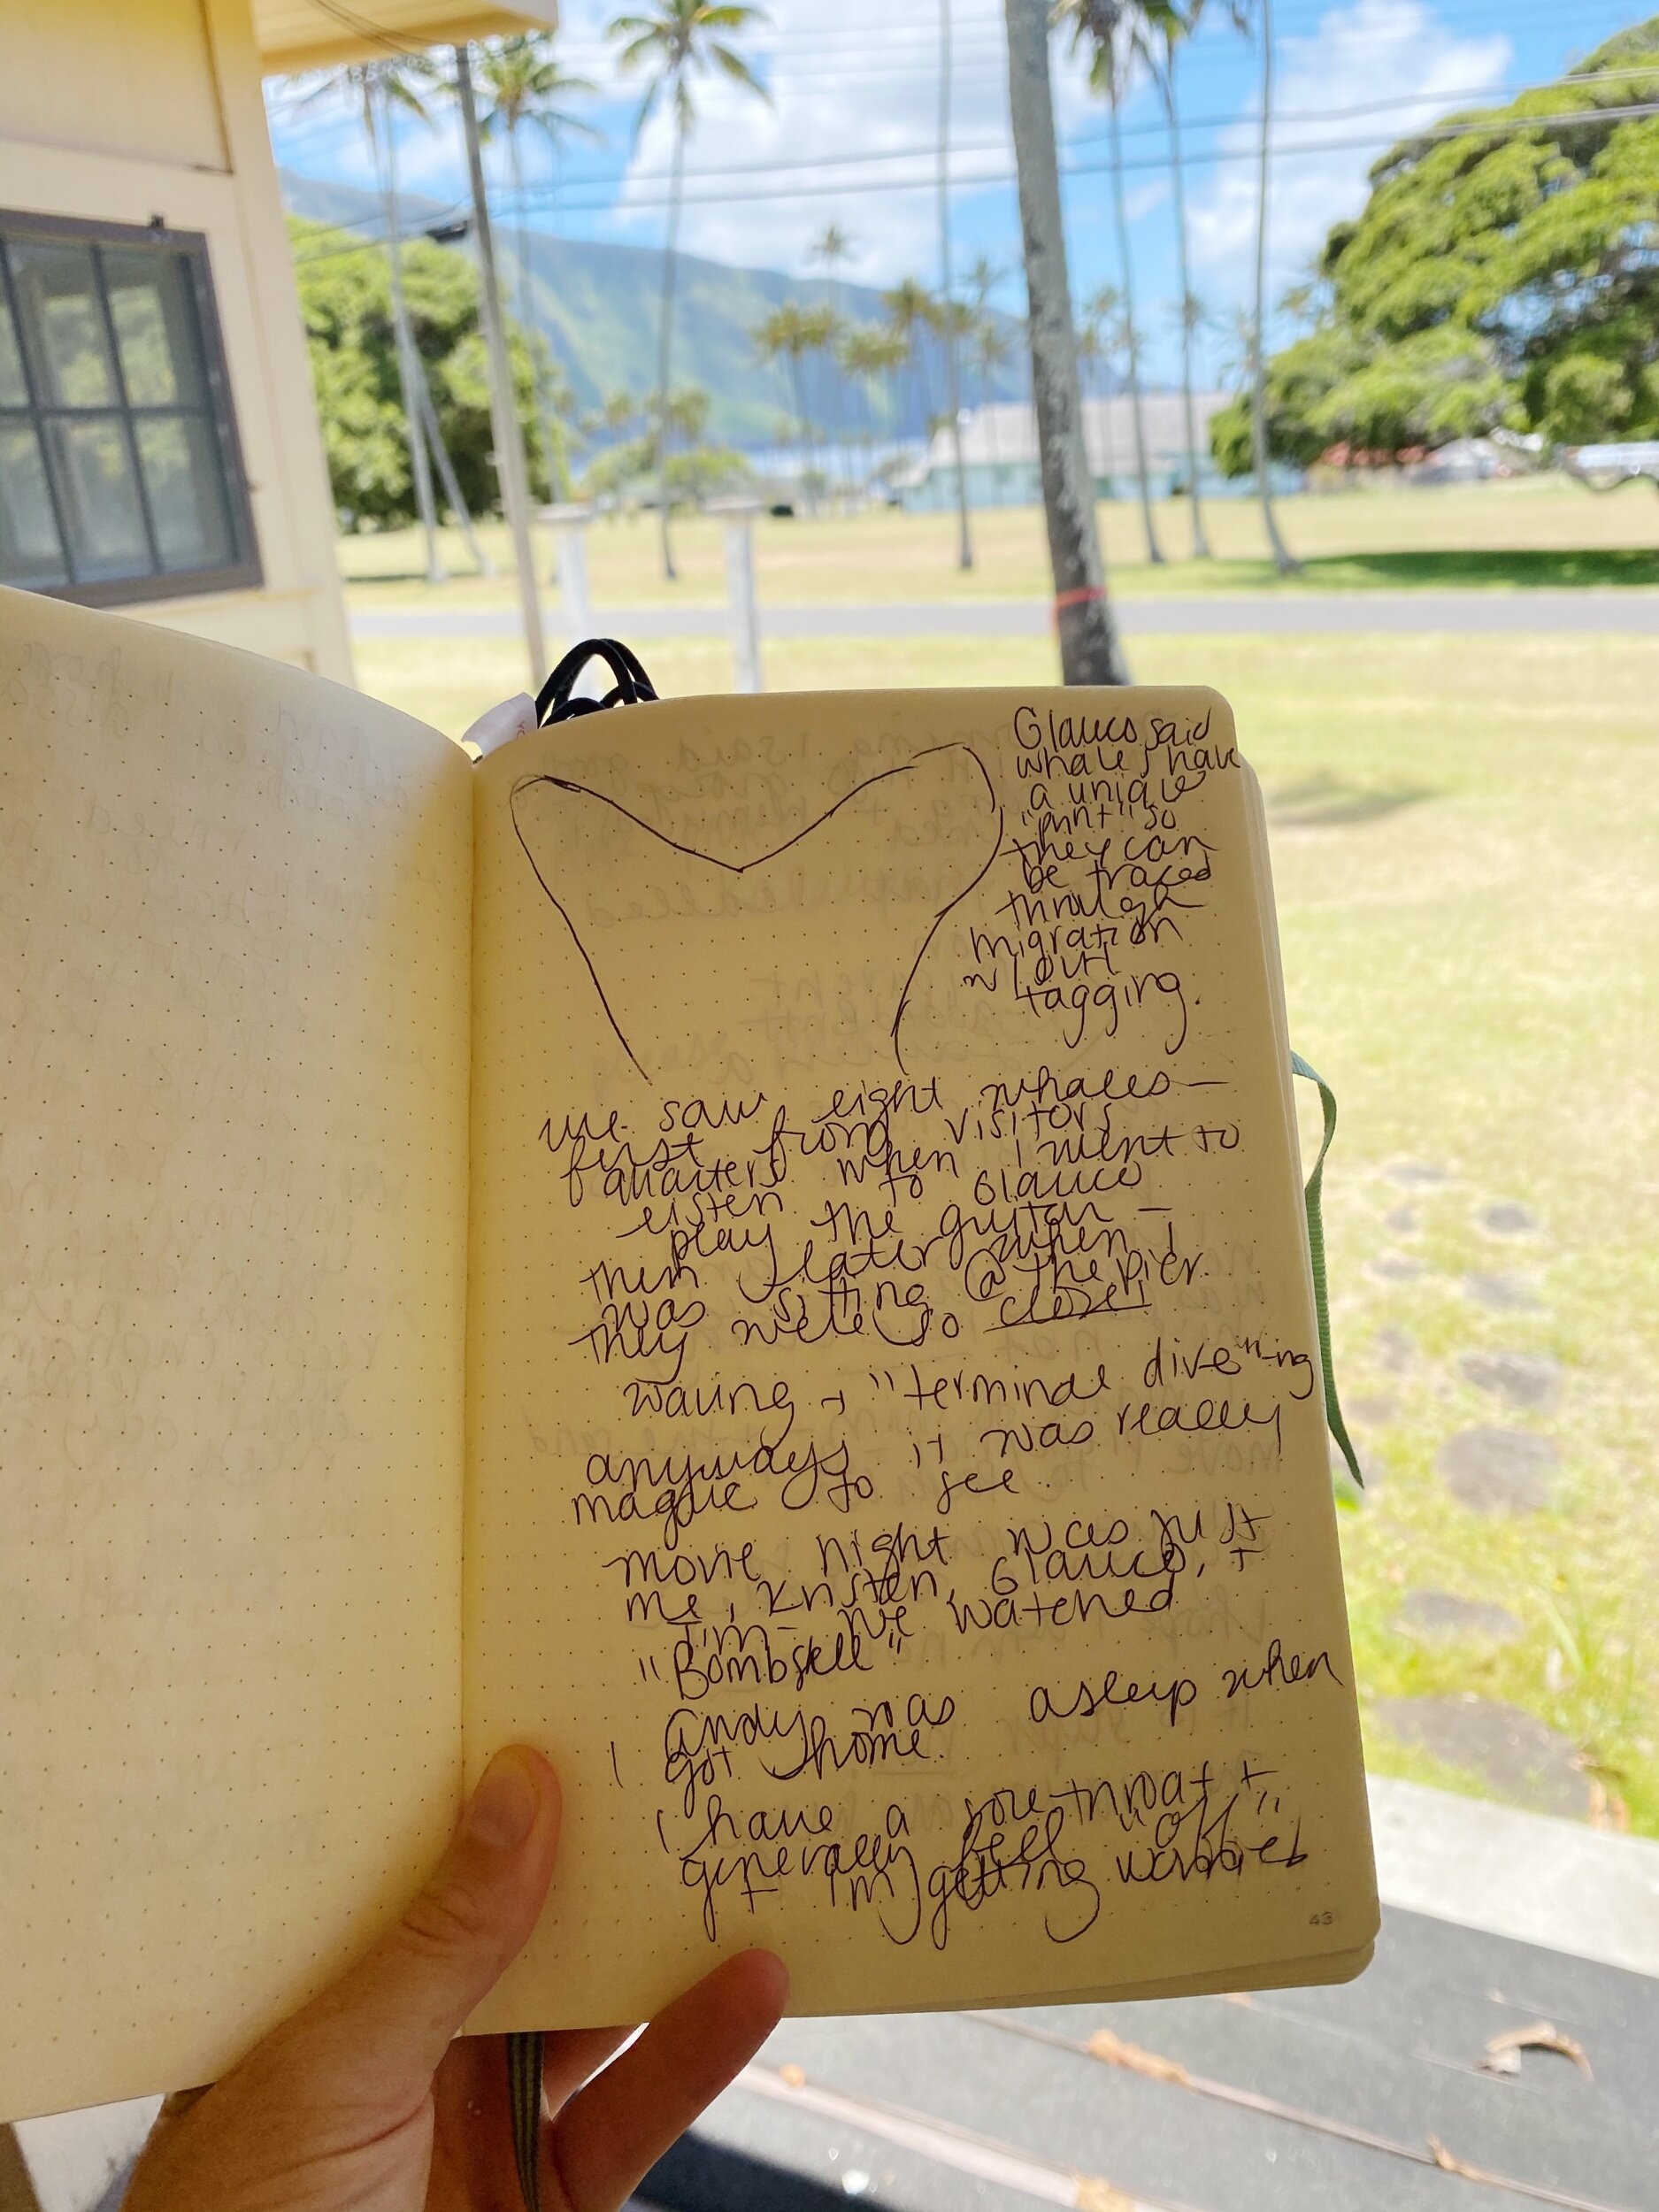 Glauco said
whales have
a unique
"print" so
they can
be traced
through
migration
w/out
tagging.
we saw eight whales—
first from visitors
quarters when I went to
listen to Glauco
play the guitar—
then later when I
was sitting @ the pier
they were so close!
waving + "terminal dive"ing
anyways it was really
magic to see.
movie night was just
me, Kristen, Glauco, +
Tim— we watched
"Bombshell"
Andy was asleep when
I got home.
I have a sore throat +
generally feel "off"
+ I'm getting worried
43